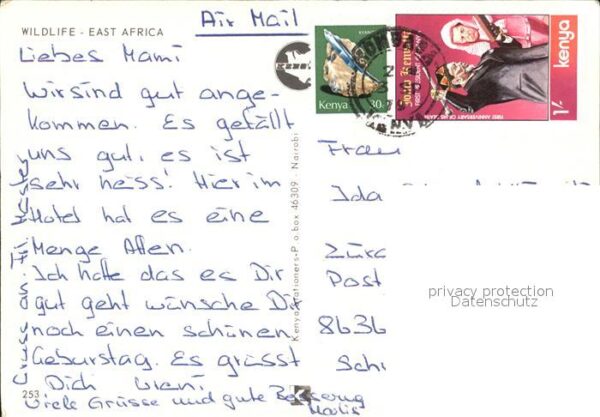 WILDLIFE - EAST AFRICA
Air Mail
Liebes Mami
Wir sind gut ange-
kommen. Es gefällt
uns gut, es ist
sehr heiss! Hier im
Hotel hat es eine
Menge Affen.
Ich hoffe das es Dir
gut geht wünsche Dir
noch einen schönen
Geburstag. Es grüsst
Dich
Viele Grüsse und gute Besserung
253
Kenya Stationers-P.o.box 46309 - Nairobi
Kenya
30c
Jomo Kenyatta
FIRST ANNIVERSARY OF HIS DEATH
1/-
kenya
Frau
Ida
Post
8636
privacy protection
Datenschutz